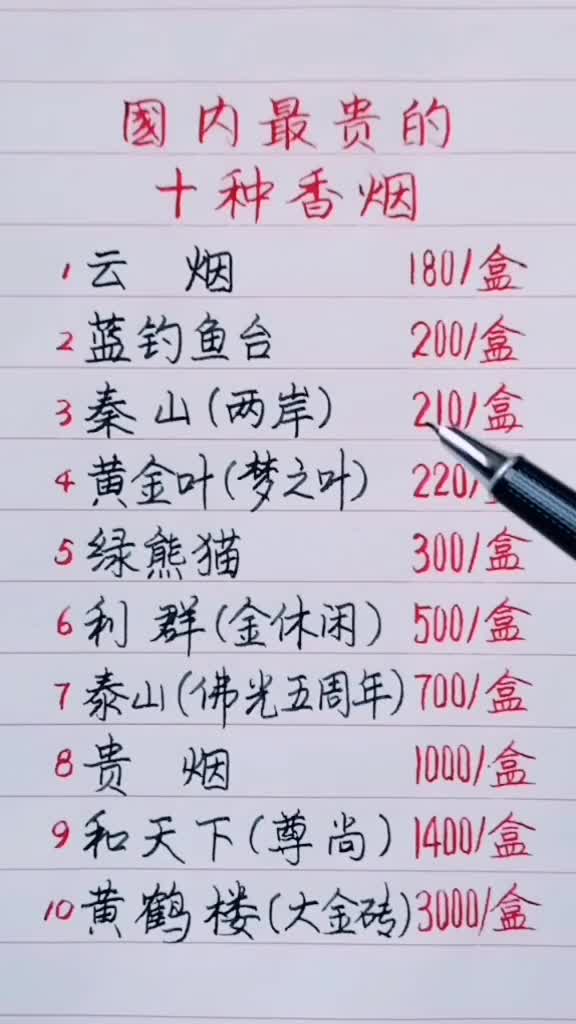 國内最贵的
十种香烟
1 云烟 180/盒
2 蓝钓鱼台 200/盒
3 秦山(两岸) 210/盒
4 黄金叶(梦之叶) 220/
5 绿熊猫 300/盒
6 利群(金休闲) 500/盒
7 泰山(佛光五周年) 700/盒
8 贵烟 1000/盒
9 和天下(尊尚) 1400/盒
10 黄鹤楼(大金砖) 3000/盒